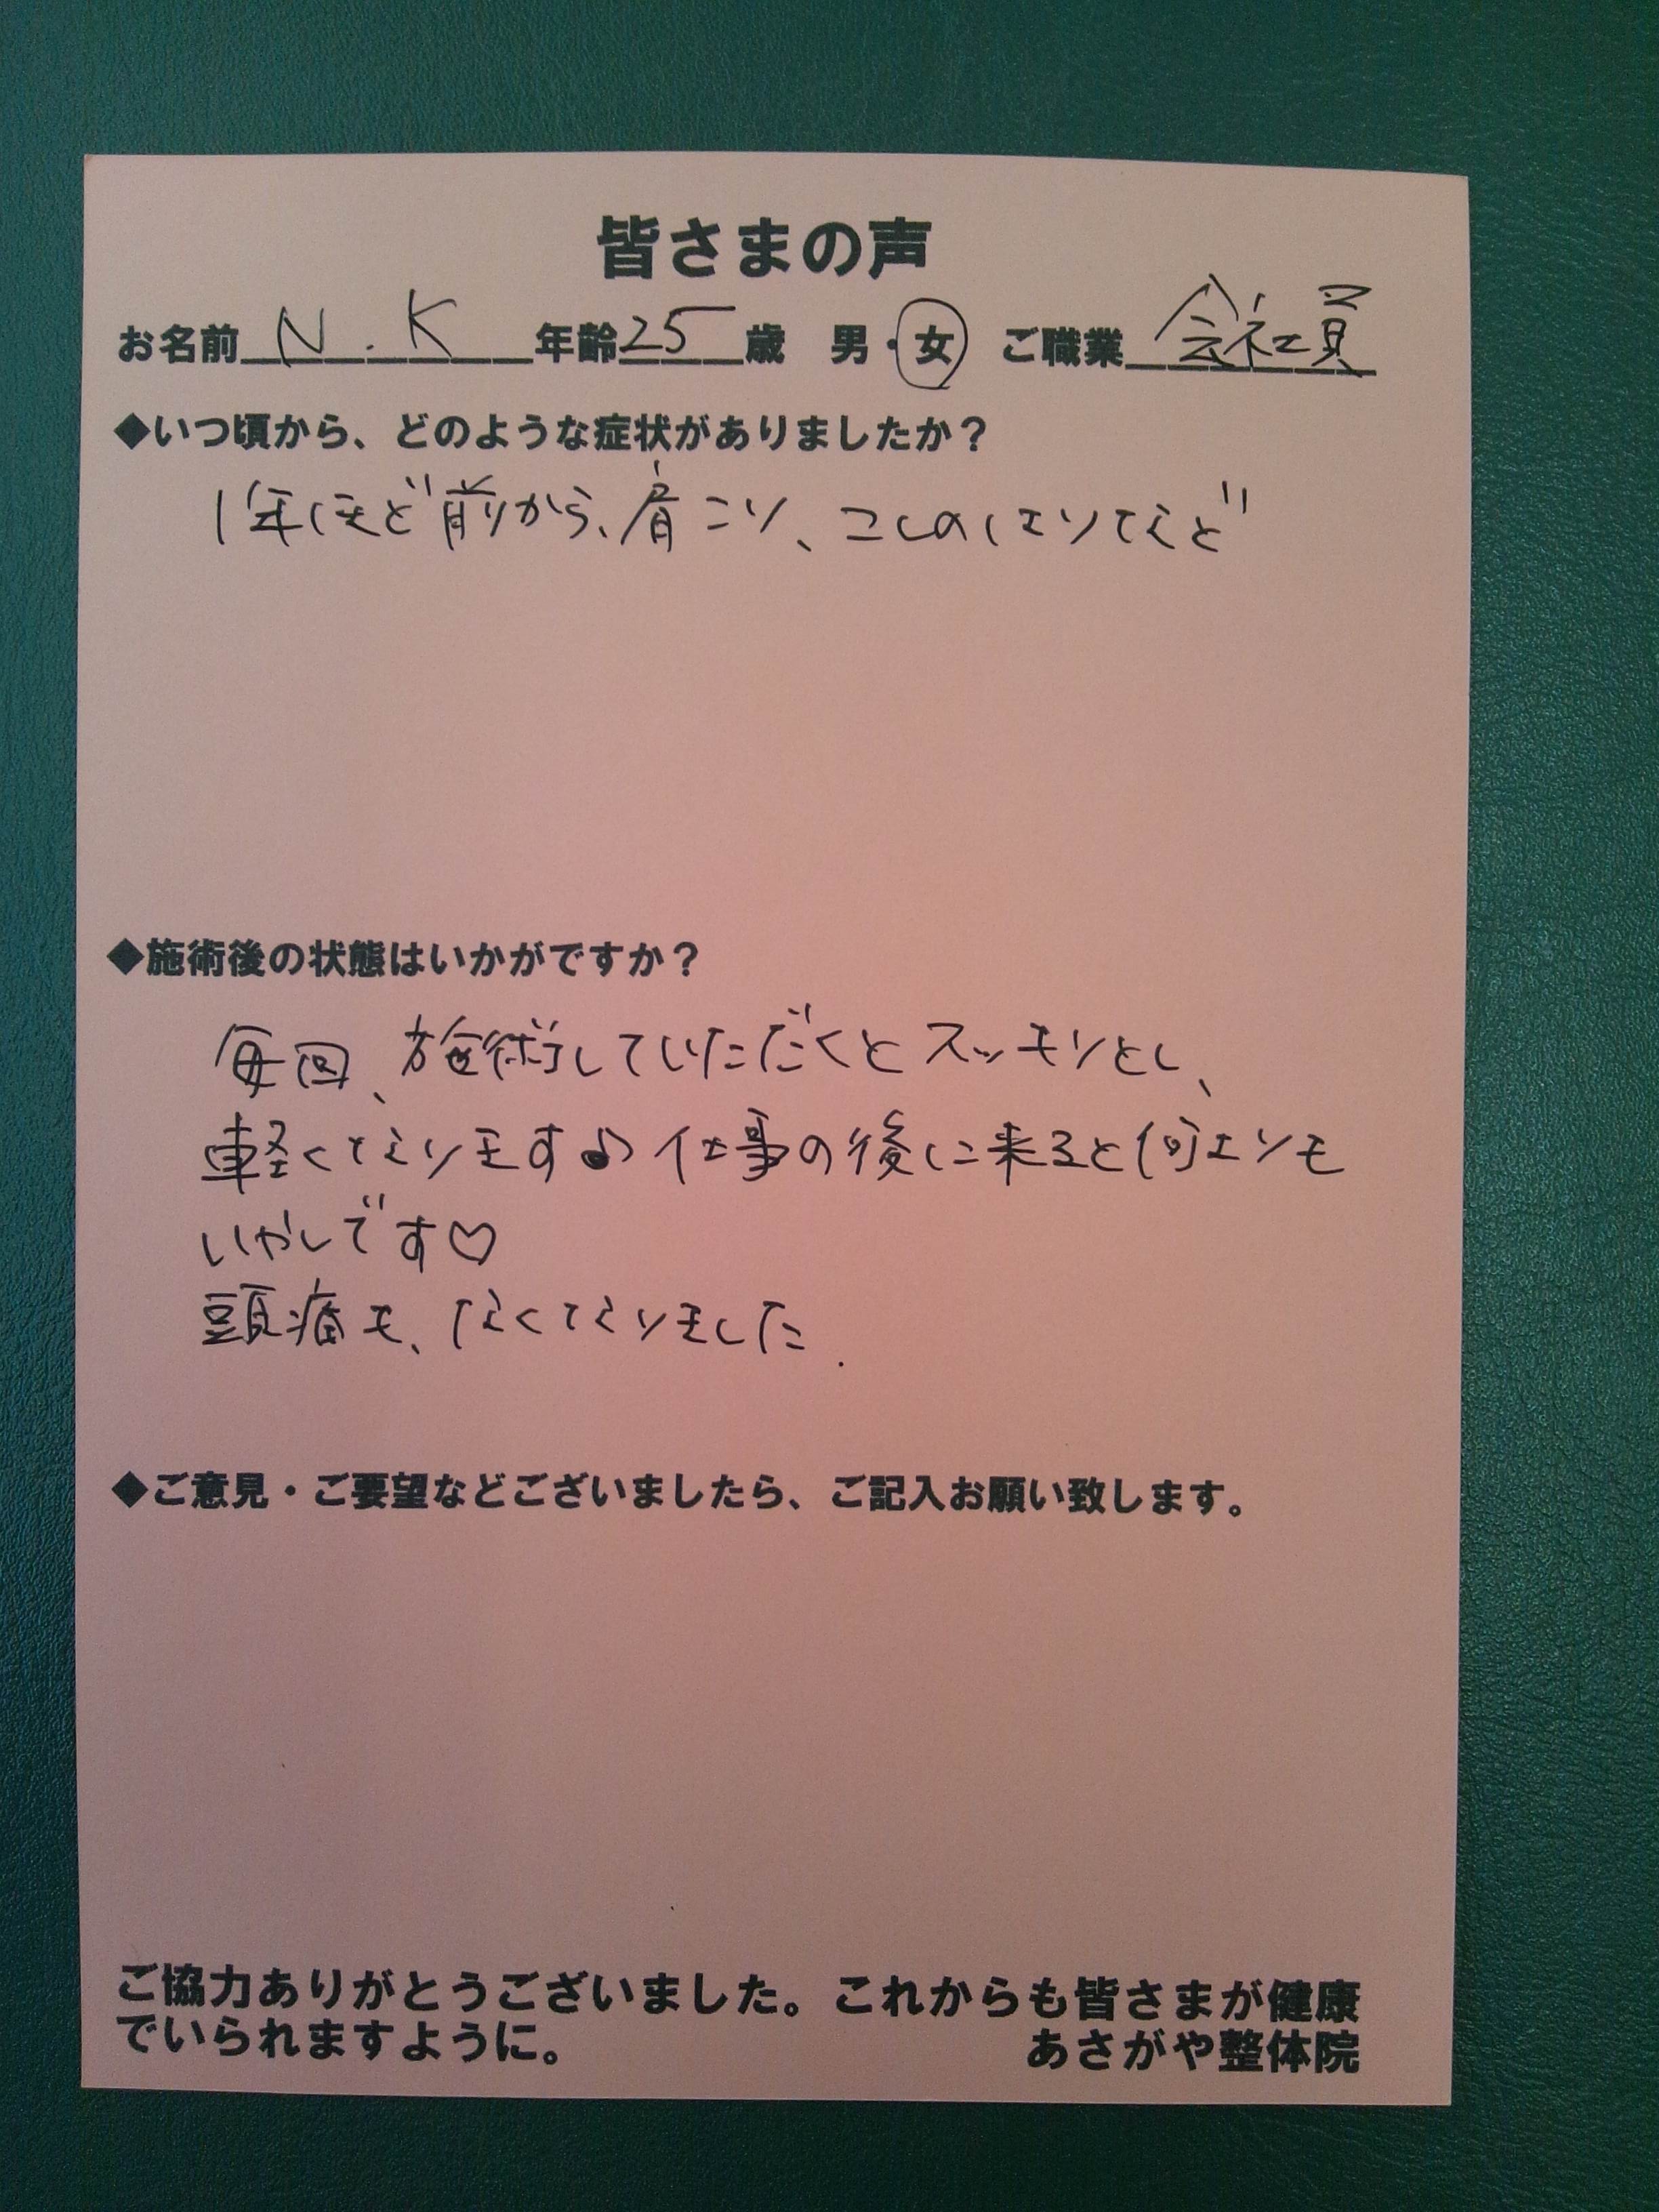 皆さまの声
お名前 N.K 年齢 25 歳 男・女 ご職業 会社員
◆いつ頃から、どのような症状がありましたか？
1年ほど前から、肩こり、こしのはりなど
◆施術後の状態はいかがですか？
毎回、施術していただくとスッキリとし、
軽くなります♪仕事の後に来ると何よりも
いやしです♡
頭痛も、なくなりました.
◆ご意見・ご要望などございましたら、ご記入お願い致します。
ご協力ありがとうございました。これからも皆さまが健康
でいられますように。 あさがや整体院